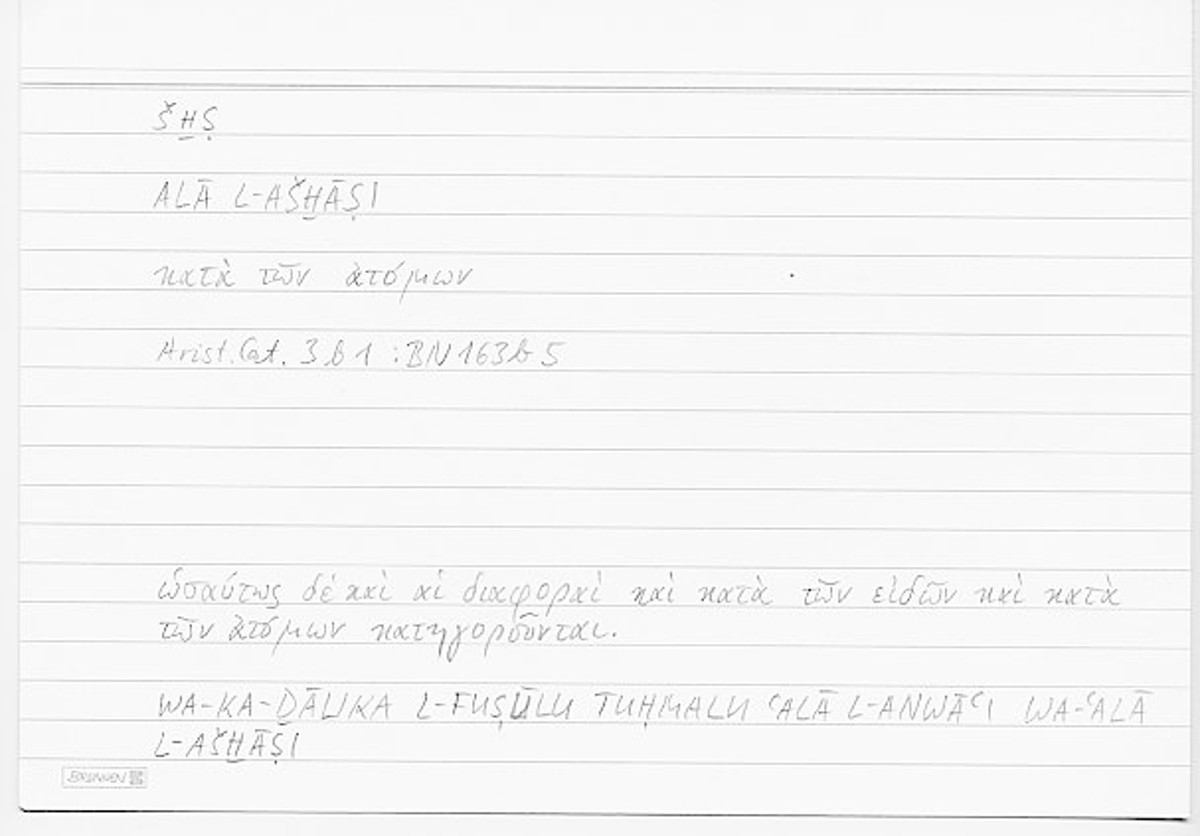 ŠH̱Ṣ
ALĀ L-AŠH̱ĀṢI
κατὰ τῶν ἀτόμων
Arist. Cat. 3 b 1 : BN 163 b 5
ὡσαύτως δὲ καὶ αἱ διαφοραὶ καὶ κατὰ τῶν εἰδῶν καὶ κατὰ
τῶν ἀτόμων κατηγοροῦνται.
WA-KA-ḎĀLIKA L-FUṢŪLU TUḤMALU ʿALĀ L-ANWĀʿI WA-ʿALĀ
L-AŠH̱ĀṢI
BRUNNEN